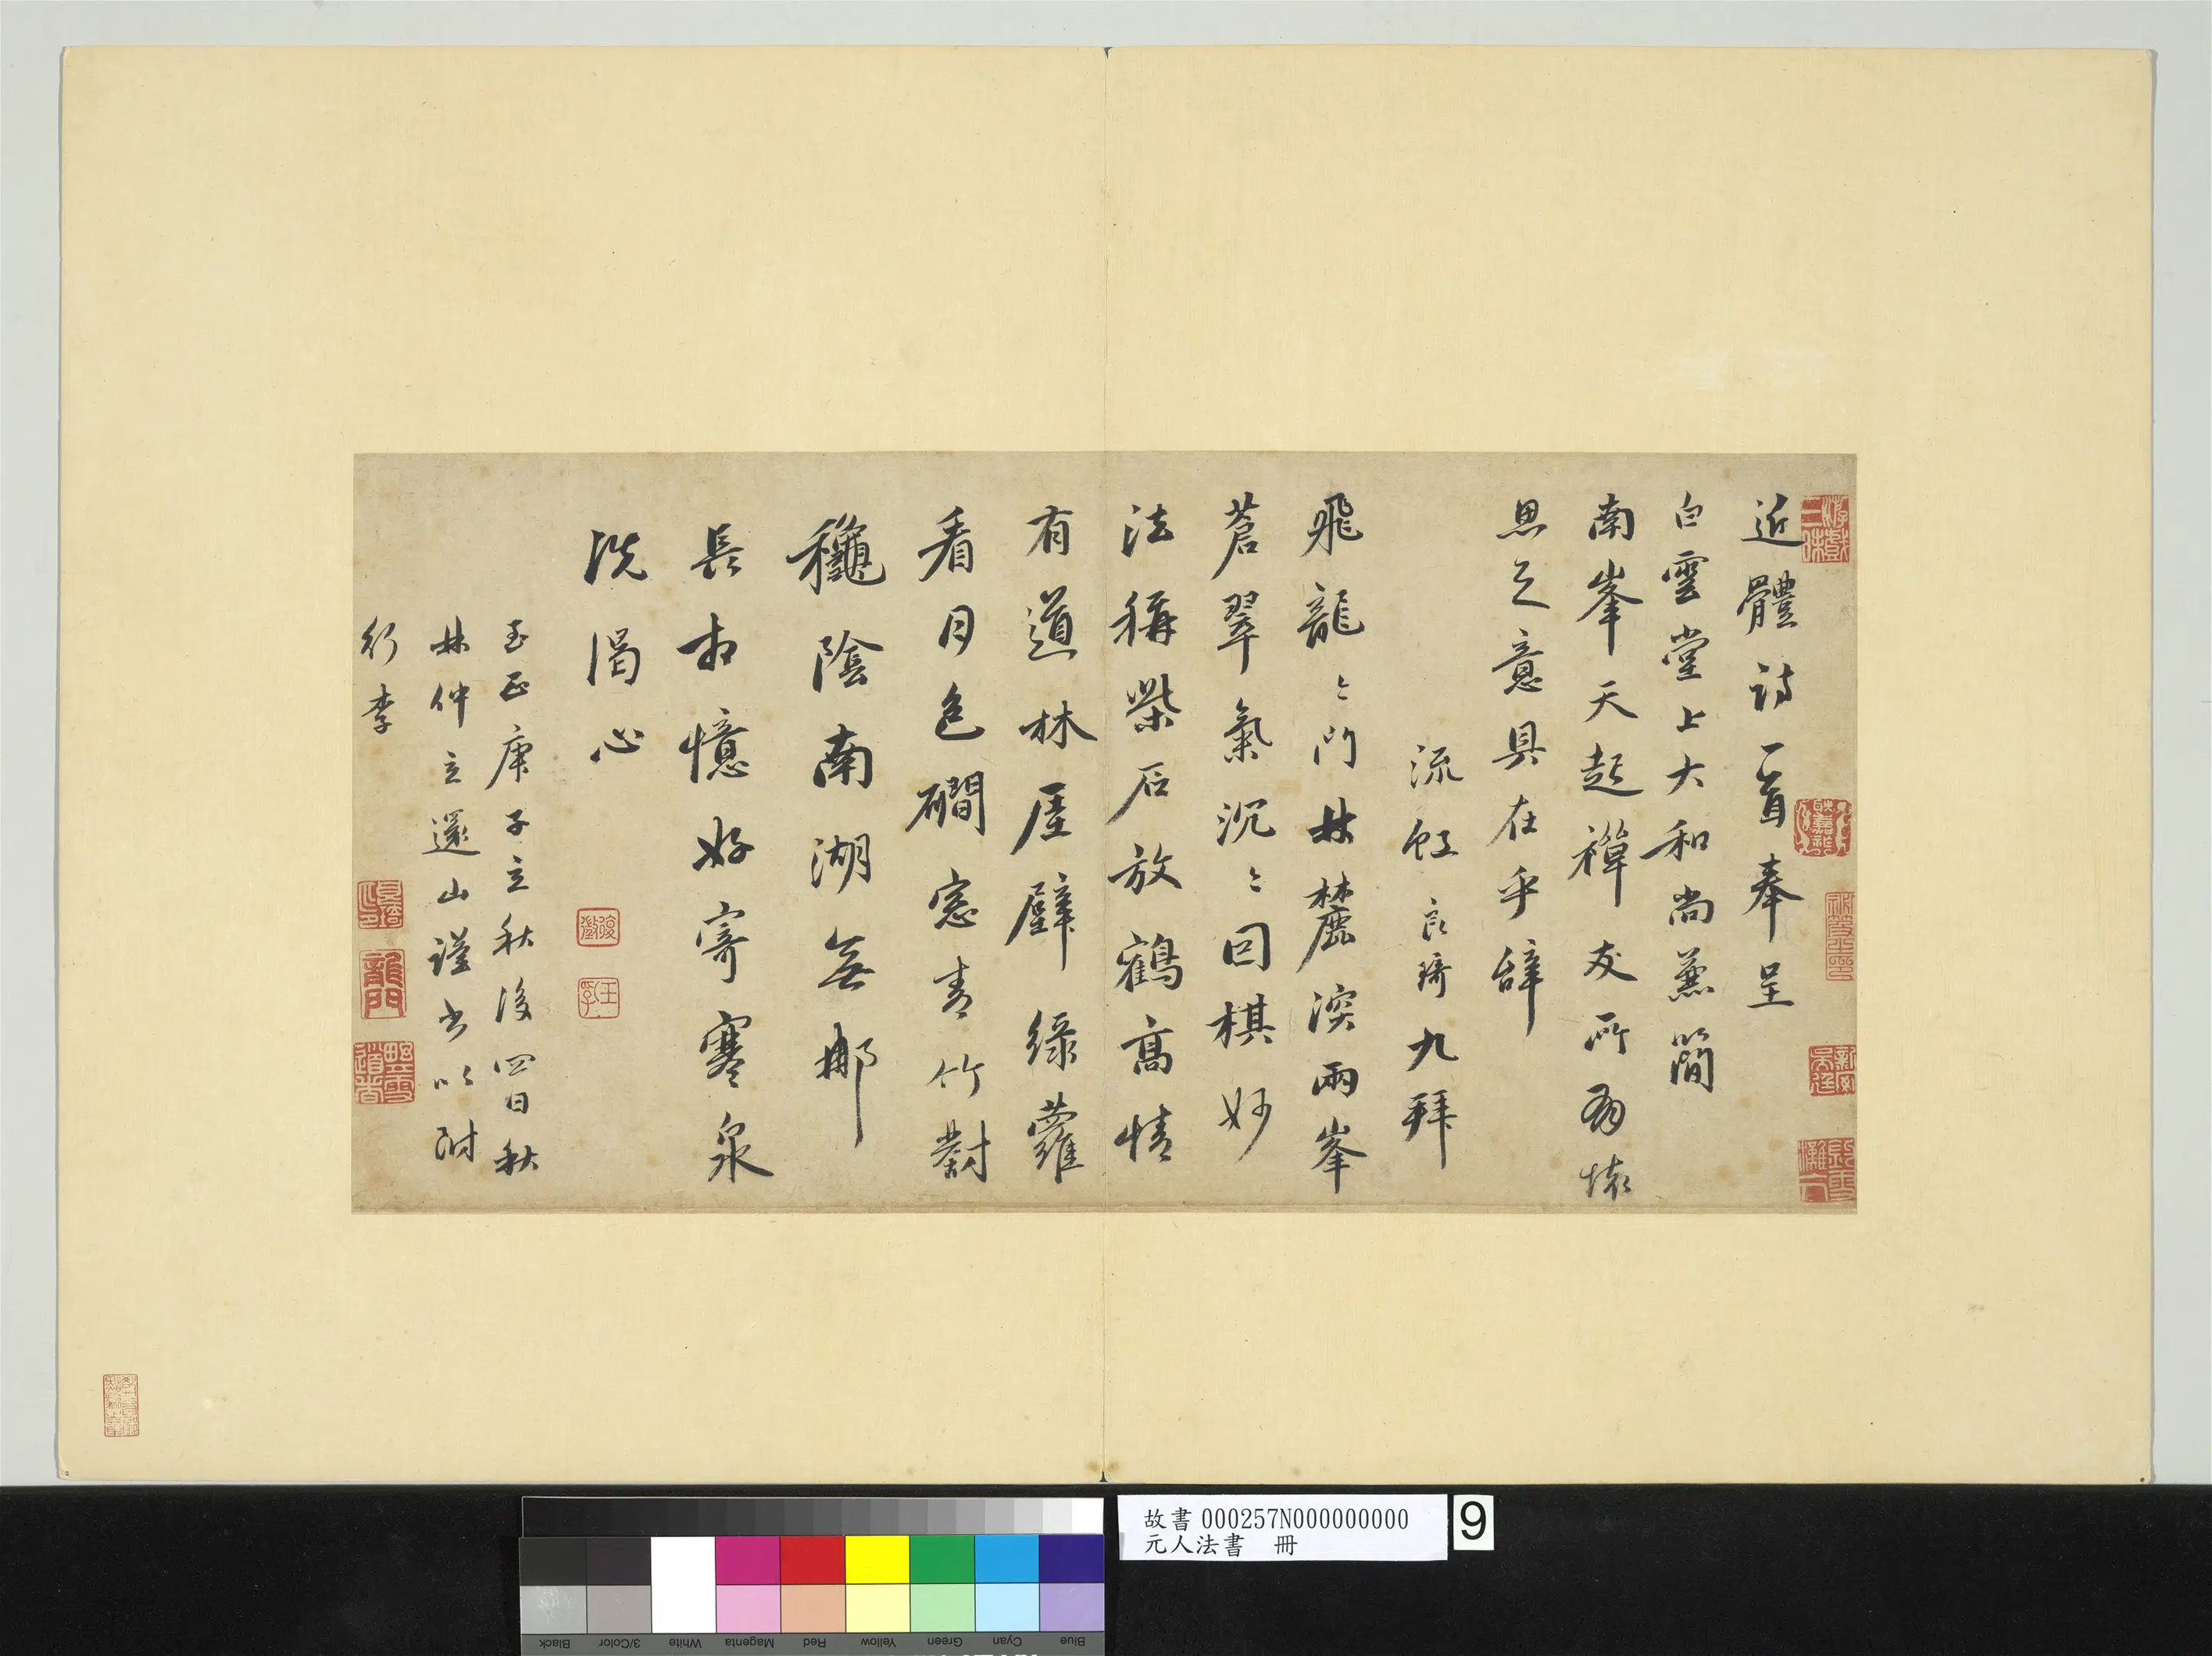 近體詩一首奉呈
白雲堂上大和尚兼簡
南峯天起禪友所有懷
思之意具在乎辞
流虹良琦九拜
飛龍〻門林麓深兩峯
蒼翠氣沉〻回棋妙
法稱柴石放鶴高情
有道林厓壁緑蘿
看月色磵窓青竹對
龝陰南湖無那
長相憶好寄寒泉
洗渴心
至正庚子立秋後四日秋
林仲立還山謹書以附
行李
故書000257N000000000
元人法書 冊
9
Black
3/Color
White
Magenta
Red
Yellow
Green
Cyan
Blue